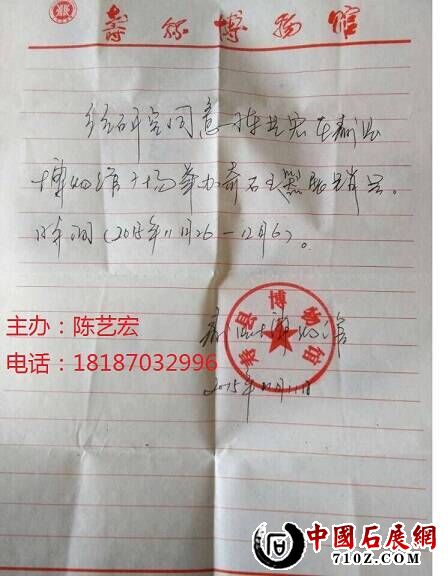 壽縣博物馆
经研究同意陈艺宏在寿县
博物馆广场举办奇石玉器展销会。
时间(2015年11月26—12月6)。
寿县博物馆
寿县博物馆
2015年11月11日
主办：陈艺宏
电话：18187032996
中國石展網
710Z.COM